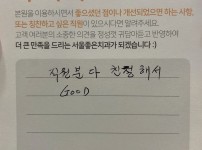 본원을 이용하시면서 좋으셨던 점이나 개선되었으면 하는 사항,
또는 칭찬하고 싶은 직원이 있으시다면 말씀해주세요.
고객 여러분의 소중한 의견을 정성껏 귀담아듣고 반영하여
더 큰 만족을 드리는 서울좋은치과가 되겠습니다 :)
직원분 다 친절해서
GOOD